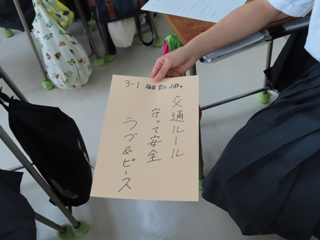 3-1
交通ルール
守って安全
ラブ&ピース